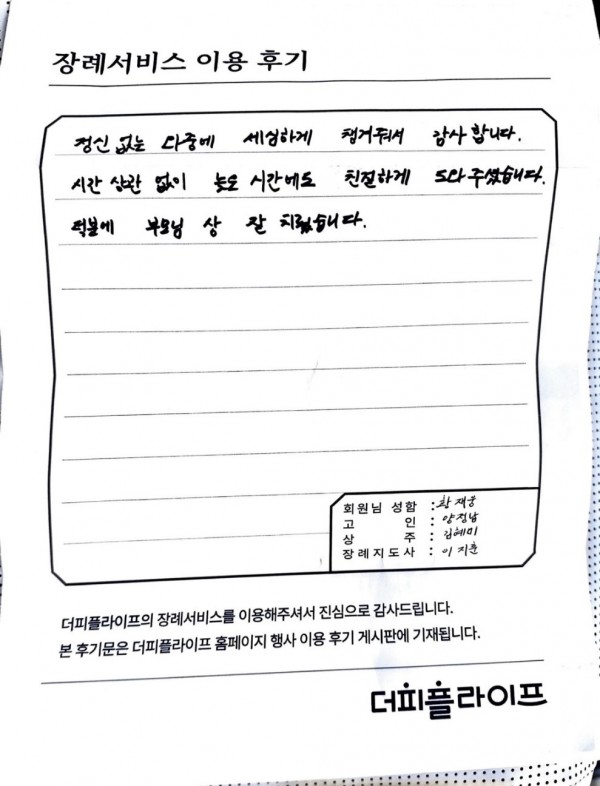 장례서비스 이용 후기
정신 없는 다중에 세심하게 챙겨줘서 감사합니다.
시간 상관 없이 늦은 시간에도 친절하게 도와주셨습니다.
덕분에 부모님 상 잘 치뤘습니다.
회원님 성함 : 황재웅
고 인 : 양정남
상 주 : 김혜미
장례지도사 : 이지훈
더피플라이프의 장례서비스를 이용해주셔서 진심으로 감사드립니다.
본 후기문은 더피플라이프 홈페이지 행사 이용 후기 게시판에 기재됩니다.
더피플라이프